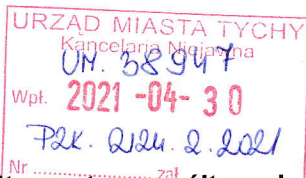 URZĄD MIASTA TYCHY
Kancelaria Niejawna
UM. 38947
Wpł. 2021 -04- 30
PZK. 2124. 2. 2021
Nr ........................ zał